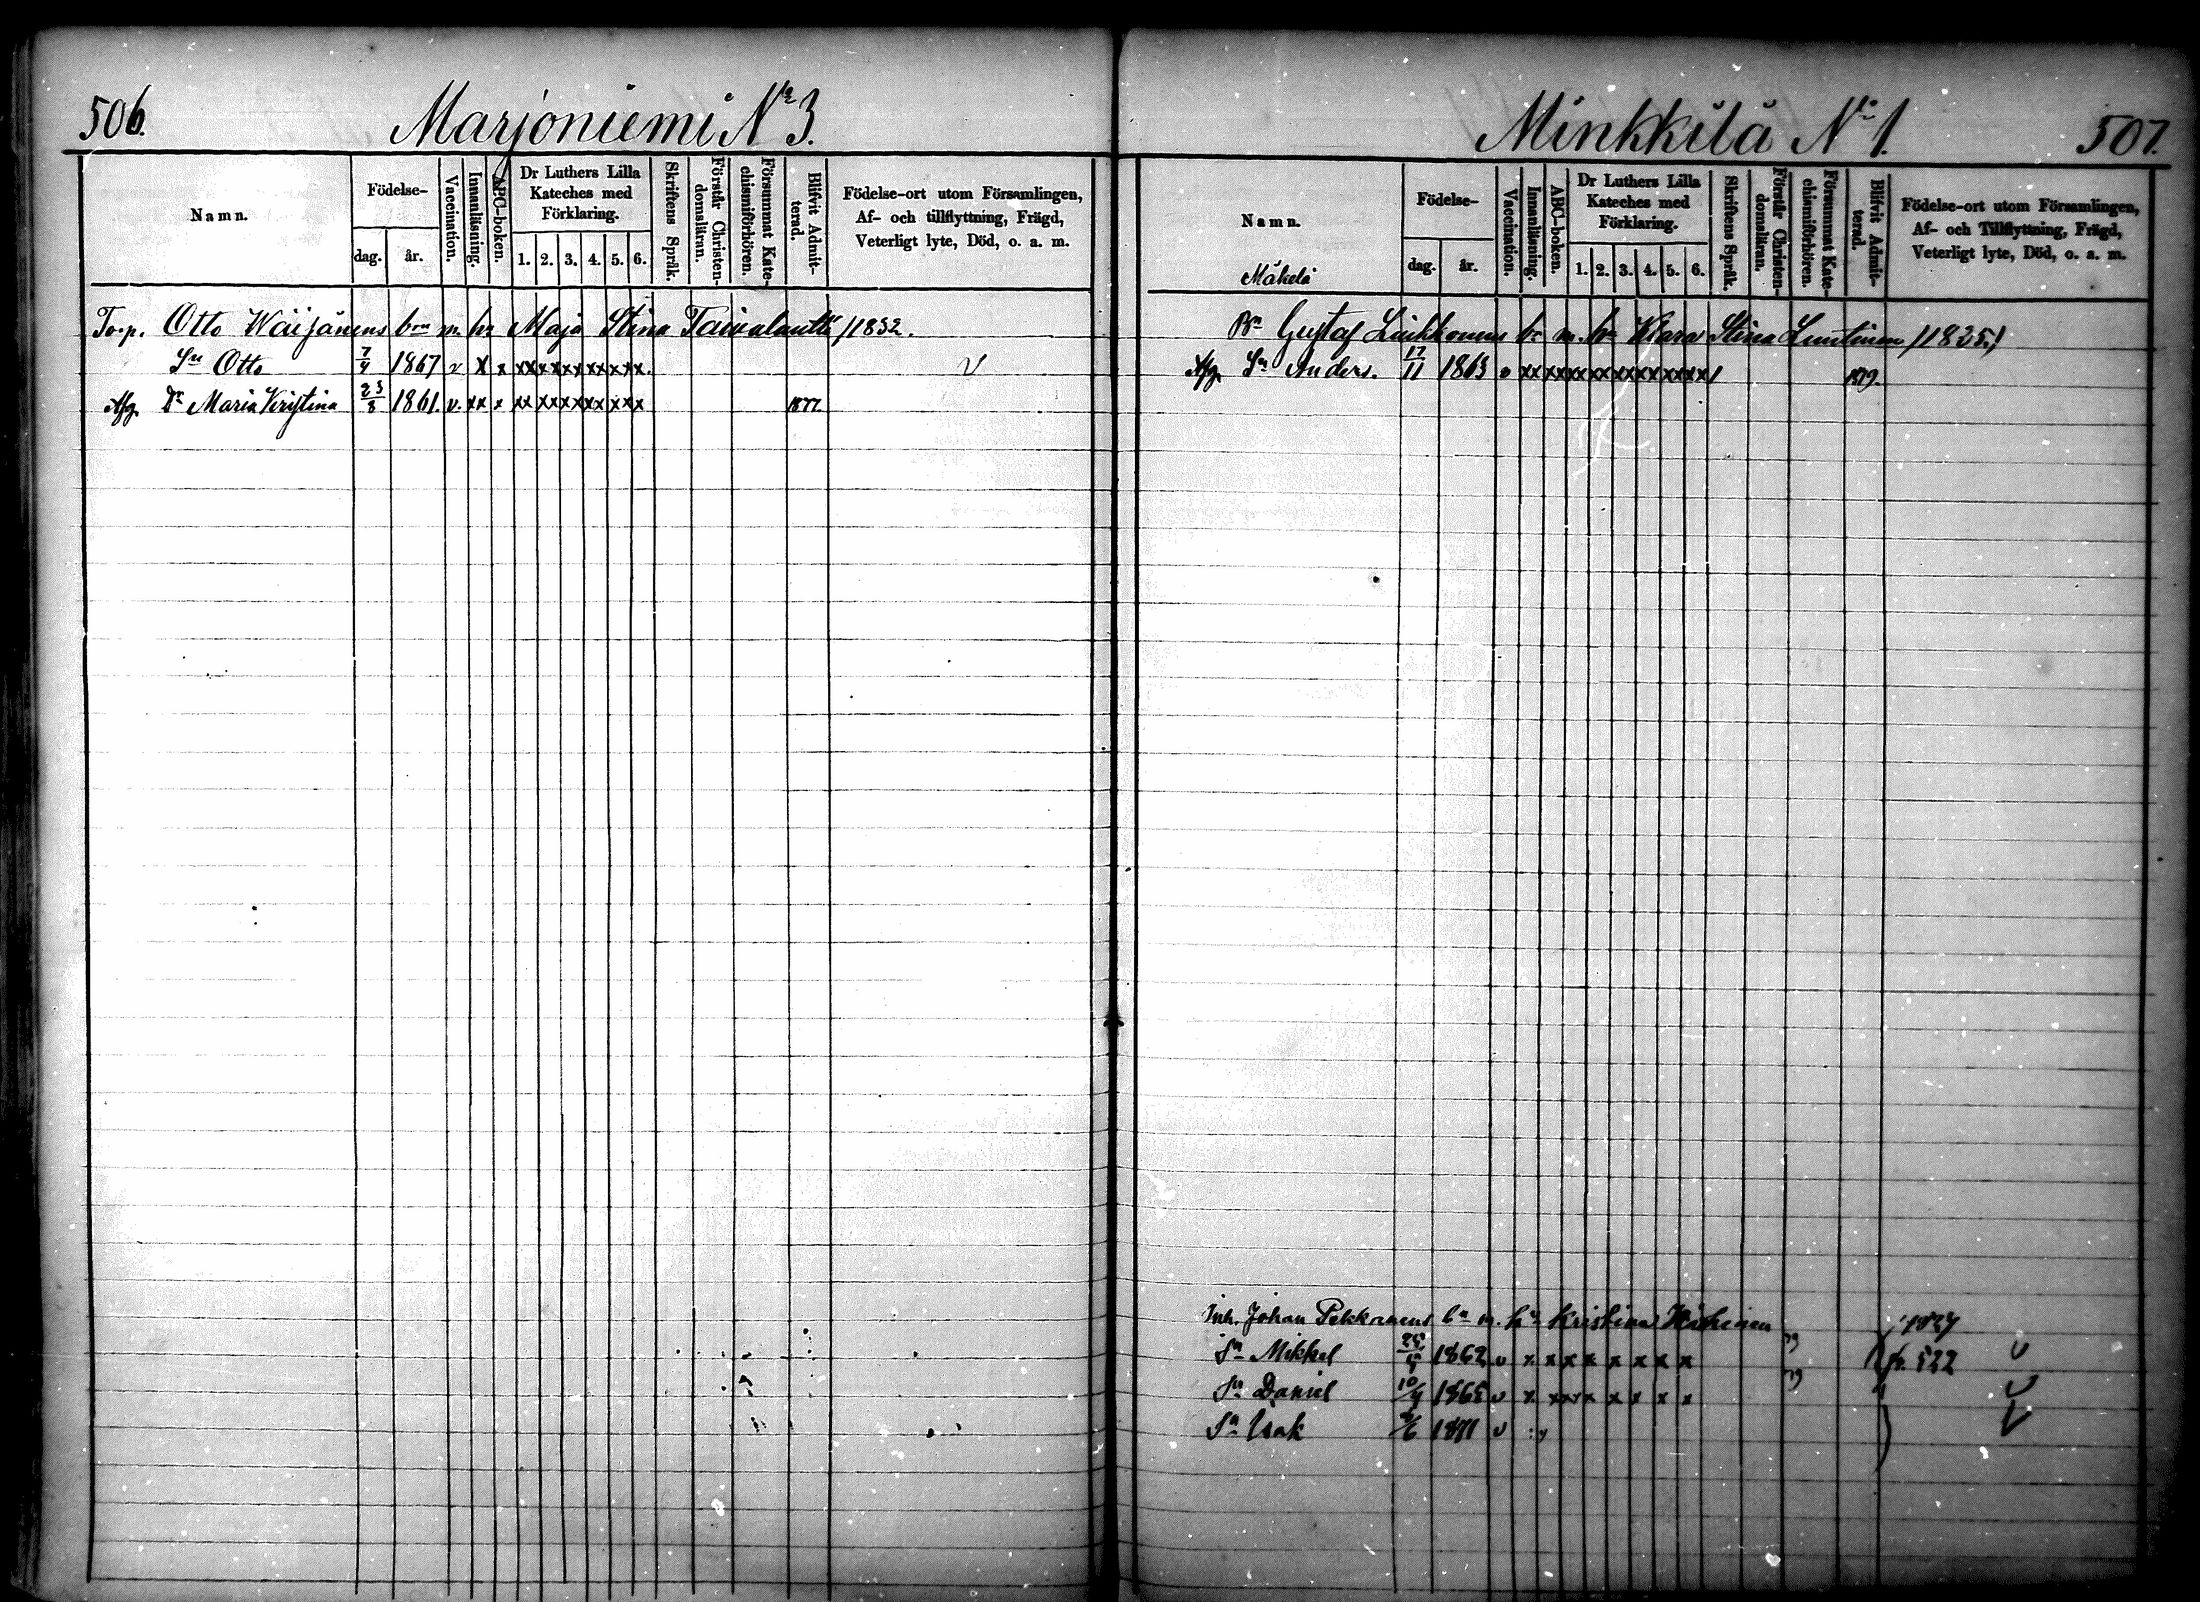 506.
Marjoniemi No 3.
Namn.
Födelse-
dag.
år.
Vaccination.
Innanläsning.
ABC-boken.
Dr Luthers Lilla
Kateches med
Förklaring.
1. 2. 3. 4. 5. 6.
Skriftens Språk.
Förstår Christen-
domsläran.
Försummat Kate-
chismiförhören.
Blifvit Admit-
terad.
Födelse-ort utom Församlingen,
Af- och tillflyttning, Frägd,
Veterligt lyte, Död, o. a. m.
Torp. Otto Wäijänens brn m. hu Maja Stina /1832.
Sn Otto 7/4 1867 v x x xx xx xx xx xx x. v
Afg. Dr Maria Kristina 23/8 1861. v. xx x xx xx xx xx xx x 1877.
Minkkilä No 1.
507.
Namn.
Mäkelä
Födelse-
dag.
år.
Vaccination.
Innanläsning.
ABC-boken.
Dr Luthers Lilla
Kateches med
Förklaring.
1. 2. 3. 4. 5. 6.
Skriftens Språk.
Förstår Christen-
domsläran.
Försummat Kate-
chismiförhören.
Blifvit Admit-
terad.
Födelse-ort utom Församlingen,
Af- och Tillflyttning, Frägd,
Veterligt lyte, Död, o. a. m.
Bn Gustaf Liukkonens bn m. hu Klara Stina Luntinen /1825./
Afg. Sn Anders. 17/11 1863 v xx xx xx xx xx xx xx x/ 1879.
Inh. Johan Pekkanens bn m. hu Kristina
Sn Mikkel 1862 v x x x x x x x fr. 522 v
Sn Daniel 10/4 v x xxx x x x x x v
Sn Isak 1871 v v